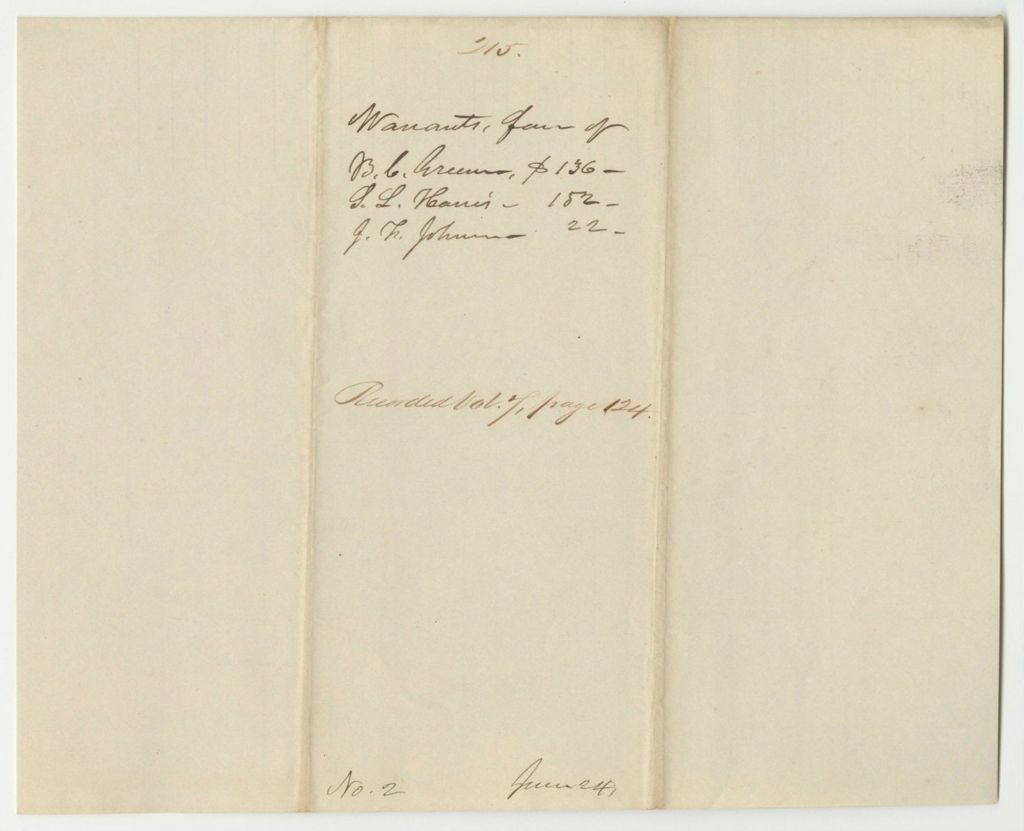 215.
Warrants, favr of
B. C. Greene, $136 –
S. L. Harris – 182 –
J. H. Johnson 22 –
Recorded Vol. 7, page 124.
No. 2 June 24,